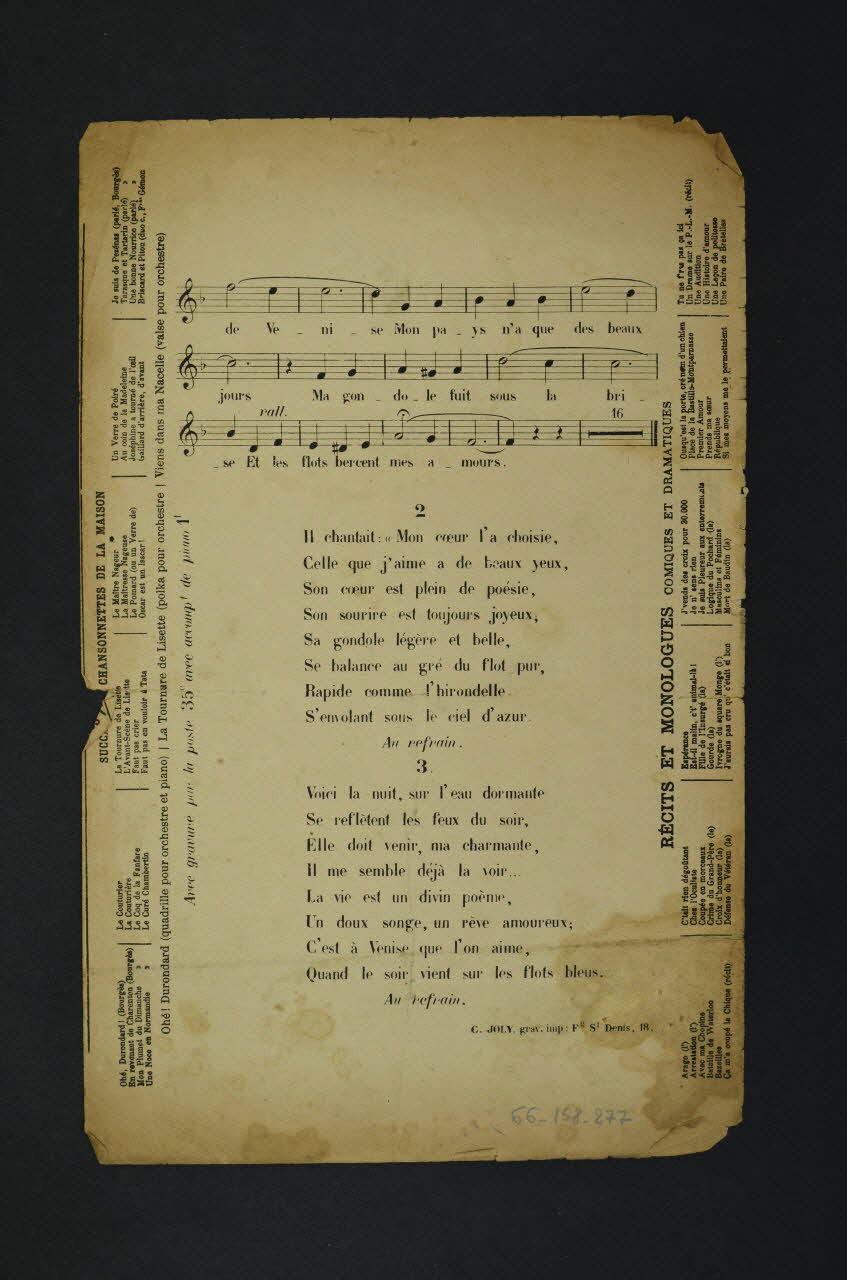 de Ve _ ni _ se Mon pa _ ys n'a que des beaux
jours Ma gon _ do _ le fuit sous la bri _
rall.
16
_ se Et les flots bercent mes a _ mours.
2
Il chantait: « Mon cœur l'a choisie,
Celle que j'aime a de beaux yeux,
Son cœur est plein de poésie,
Son sourire est toujours joyeux,
Sa gondole légère et belle,
Se balance au gré du flot pur,
Rapide comme l'hirondelle
S'envolant sous le ciel d'azur.
Au refrain.
3
Voici la nuit, sur l'eau dormante
Se reflètent les feux du soir,
Elle doit venir, ma charmante,
Il me semble déjà la voir...
La vie est un divin poème,
Un doux songe, un rêve amoureux;
C'est à Venise que l'on aime,
Quand le soir vient sur les flots bleus.
Au refrain.
C. JOLY, grav. imp: Fg St Denis, 18.
66-158-277
CHANSONNETTES DE LA MAISON
Ohé, Durondard! (Bourgès)
En revenant de Charenton (Bourgès)
Mon Plumet du Dimanche »
Une Noce en Normandie »
Le Couturier
La Couturière
Le Coq de la Fanfare
Le Curé Chambertin
La Tournure de Lisette
L'Avant-Scène de Lisette
Faut pas crier
Faut pas en vouloir à Tata
Le Maître Nageur
La Maîtresse Nageuse
Le Pomard (ou un Verre de)
Oscar est un lascar!
Un Verre de Poiré
Au coin de la Madeleine
Joséphine a tourné de l'œil
Gaillard d'arrière, d'avant
Je suis de Pézénas (parlé, Bourgès)
Tarasque et Tartarin (parlé) »
Une bonne Nourrice (parlé) »
Briscard et Pitou (duo c., Fois Gémon
Ohé! Durondard (quadrille pour orchestre et piano) | La Tournure de Lisette (polka pour orchestre | Viens dans ma Nacelle (valse pour orchestre)
Avec gravure par la poste 35c avec accompt de piano 1f
RÉCITS ET MONOLOGUES COMIQUES ET DRAMATIQUES
Arago (l')
Arrestation (l')
Avec ma Chopine
Bataille de Waterloo
Bazeilles
Ça m'a coupé la Chique (récit)
C'était rien dégoûtant
Chez l'Oculiste
Coupée en morceaux
Crime du Grand-Père (le)
Croix d'honneur (la)
Défense du Vétéran (la)
Espérance
Est-il malin, c't' animal-là!
Fille de l'Insurgé (la)
Gourde (la)
Ivrogne du square Monge (l')
J'aurais pas cru qu' c'était si bon
J'vends des croix pour 30.000
Je n' sens rien
Je suis Pleureur aux enterrements
Logique du Pochard (la)
Masculins et Féminins
Mort de Baudin (la)
Ousqu'est la porte, cré nom d'un chien
Place de la Bastille-Montparnasse
Premier Amour
Prends ma sœur
République
Si mes moyens me le permettaient
Tu ne f'ras pas ça ici
Un Drame sur le P.-L.-M. (récit)
Une Audition
Une Histoire d'amour
Une Leçon de politesse
Une Paire de Bretelles